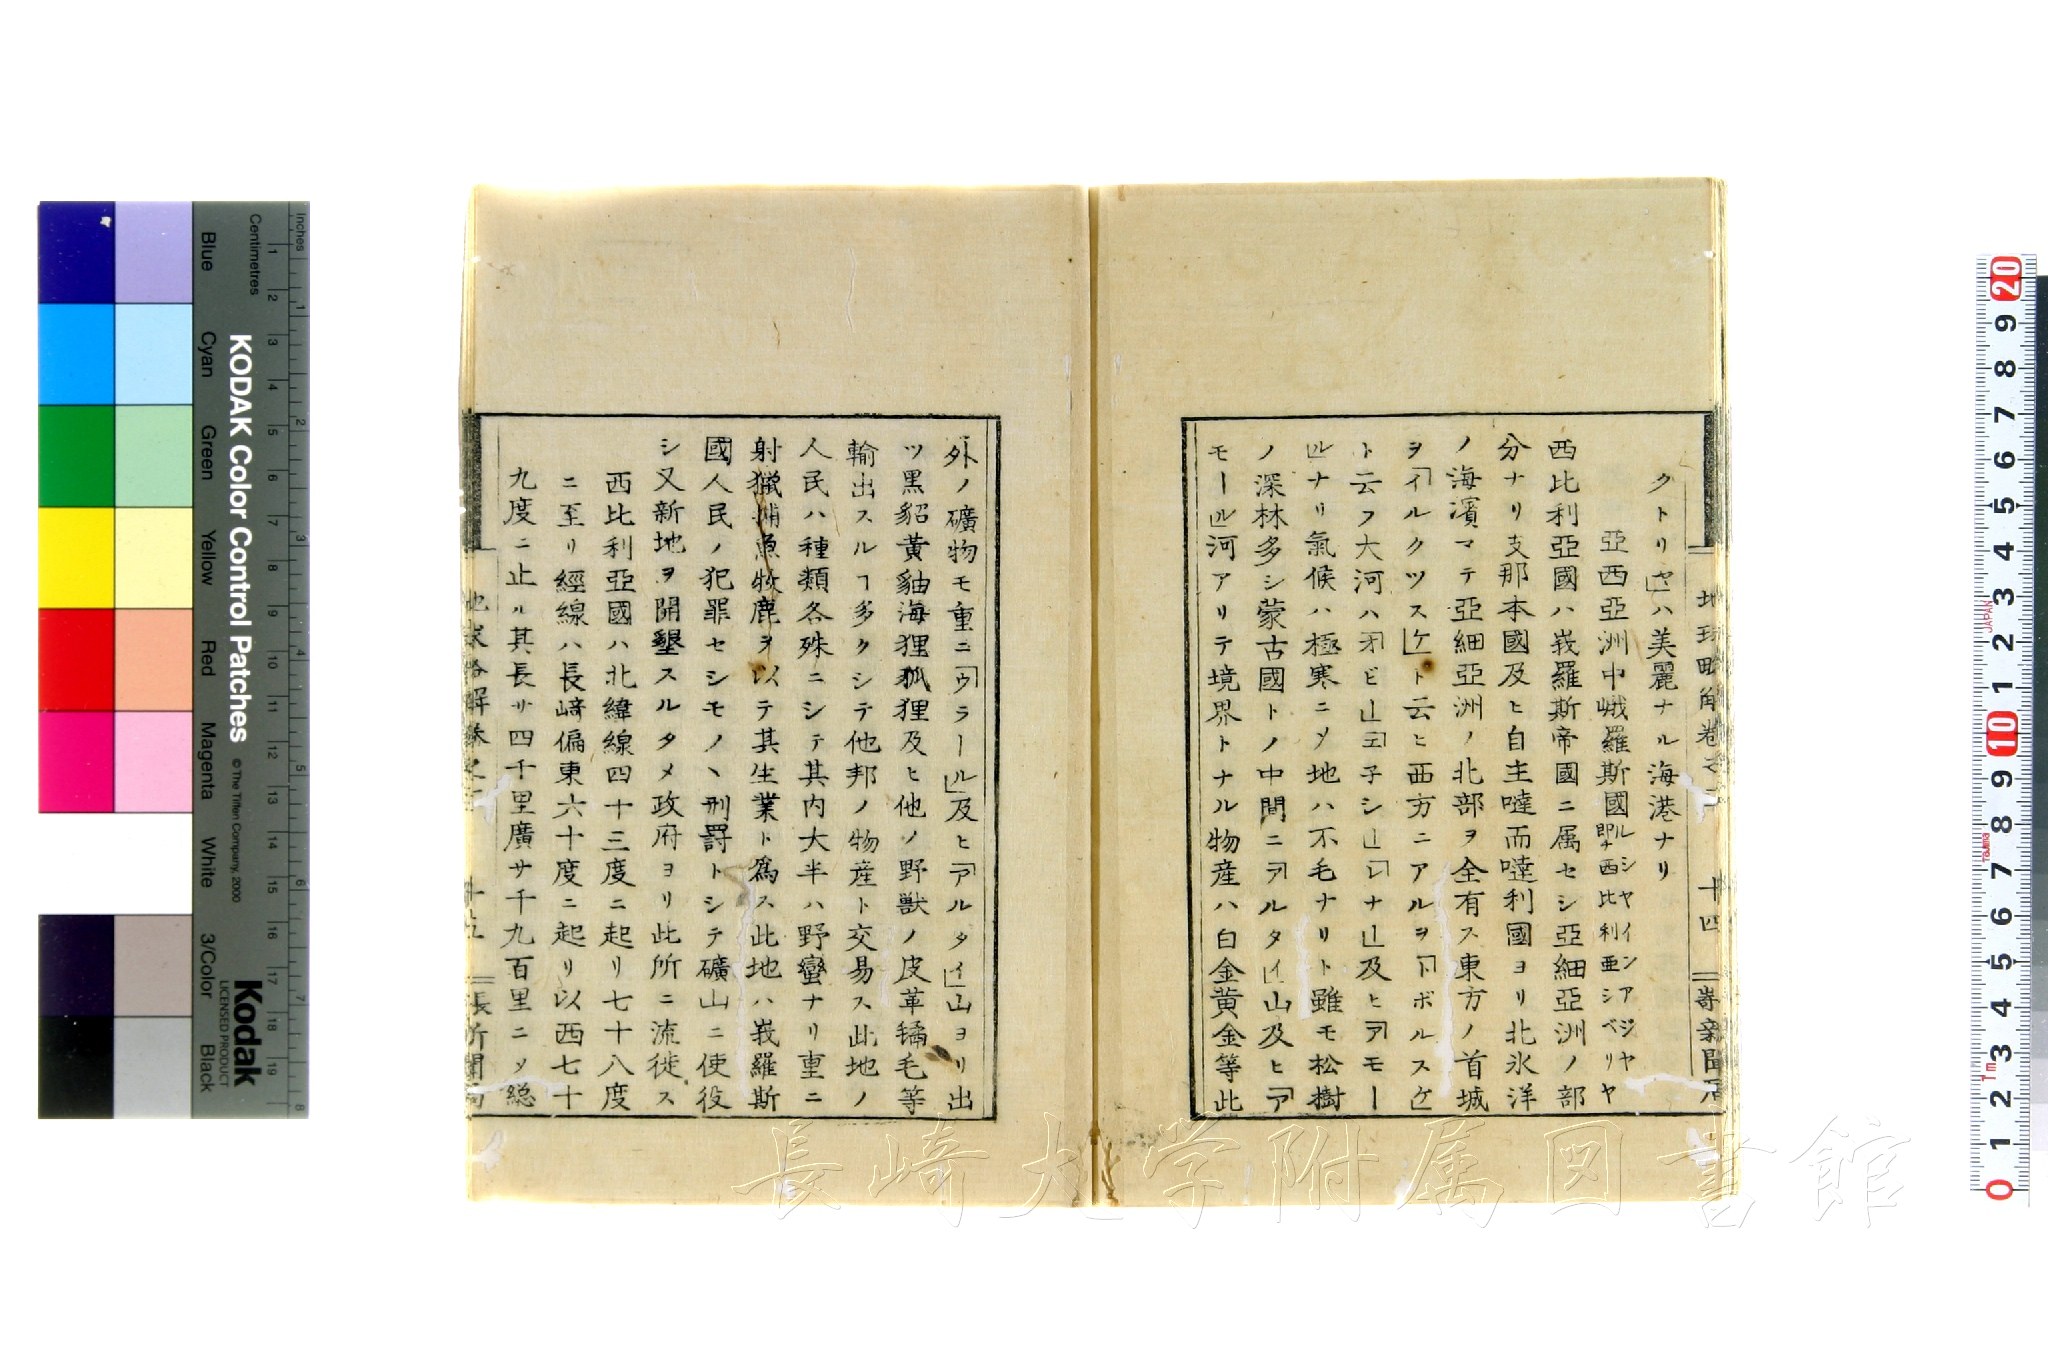 クトリ「ヤ」ハ美麗ナル海港ナリ
亞西亞洲中峨羅斯國ルシヤインアジヤ即チ西比利亜シベリヤ
西比利亞國ハ峩羅斯帝國ニ属セシ亞細亞洲ノ部
分ナリ支那本國及ヒ自主噠而噠利國ヨリ北氷洋
ノ海濱マテ亞細亞洲ノ北部ヲ全有ス東方ノ首城
ヲ「イルクツスケ」ト云ヒ西方ニアルヲ「トボルスケ」
ト云フ大河ハ「オビ」「エ子シ」「レナ」及ヒ「アモー
ル」ナリ氣候ハ極寒ニソ地ハ不毛ナリト雖モ松樹
ノ深林多シ蒙古國トノ中間ニ「アルタイ」山及ヒ「ア
モール」河アリテ境界トナル物産ハ白金黄金等此
外ノ礦物モ重ニ「ウラール」及ヒ「アルタイ」山ヨリ出
ツ黒貂黄鼬海狸狐狸及ヒ他ノ野獣ノ皮革毛等
輸出スルヿ多クシテ他邦ノ物産ト交易ス此地ノ
人民ハ種類各殊ニシテ其内大半ハ野蠻ナリ重ニ
射獵捕魚牧鹿ヲ以テ其生業ト爲ス此地ハ峩羅斯
國人民ノ犯罪セシモノヽ刑罸トシテ礦山ニ使役
シ又新地ヲ開墾スルタメ政府ヨリ此所ニ流徙ス
西比利亞國ハ北緯線四十三度ニ起リ七十八度
ニ至リ經線ハ長﨑偏東六十度ニ起リ以西七十
九度ニ止ル其長サ四千里廣サ千九百里ニソ総
地球畧解巻之二 十四 﨑新聞局
十五 長 新聞局
KODAK Color Control Patches
© The Tiffen Company, 2000
Kodak
LICENSED PRODUCT
Inches
Centimetres
Blue
Cyan
Green
Yellow
Red
Magenta
White
3/Color
Black
長崎大学附属図書館